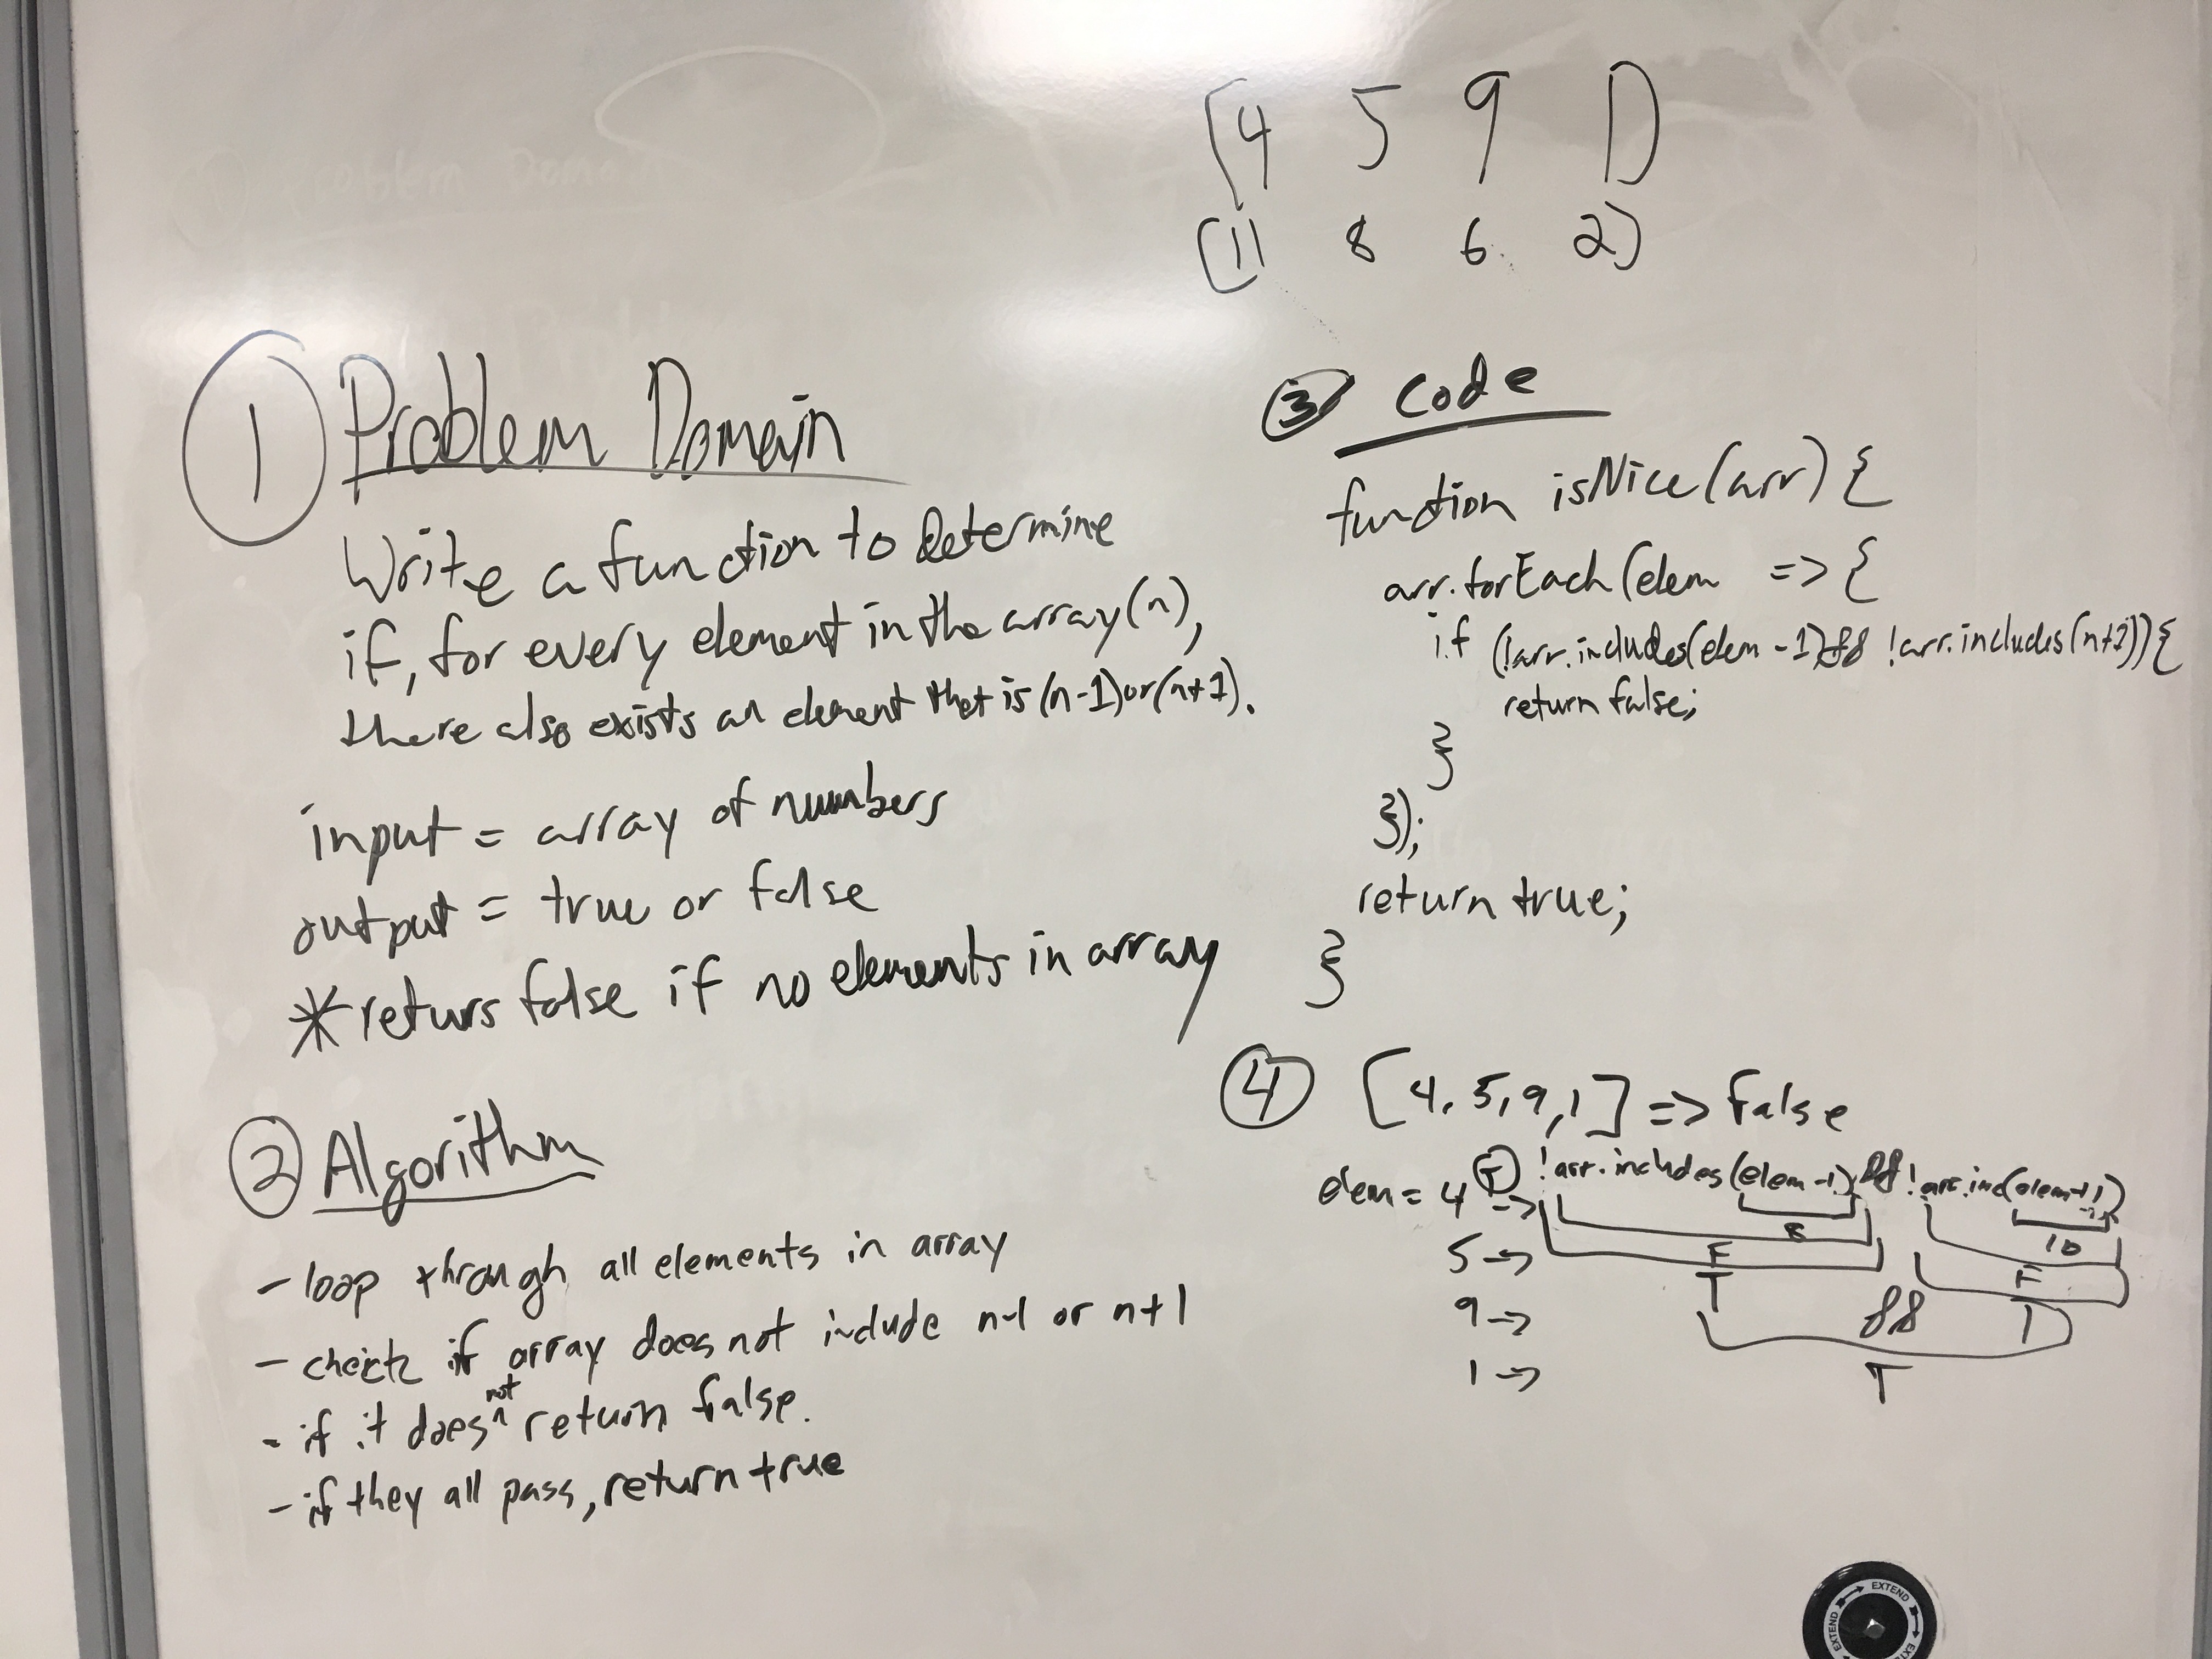 [4 5 9 1]
[11 8 6 2]
① Problem Domain
Write a function to determine
if, for every element in the array (n),
there also exists an element that is (n-1) or (n+1).
input = array of numbers
output = true or false
* returs false if no elements in array
② Algorithm
- loop through all elements in array
- check if array does not include n-1 or n+1
- if it does not return false.
- if they all pass, return true
③ Code
function isNice(arr) {
arr.forEach(elem => {
if (!arr.includes(elem - 1) && !arr.includes(n+1)) {
return false;
}
});
return true;
}
④ [4, 5, 9, 1] => false
elem = 4 => T !arr.includes(elem -1) && !arr.inc(elem+1)
8 10
5 => F F
T && T
9 =>
1 => T
EXTEND EXTEND